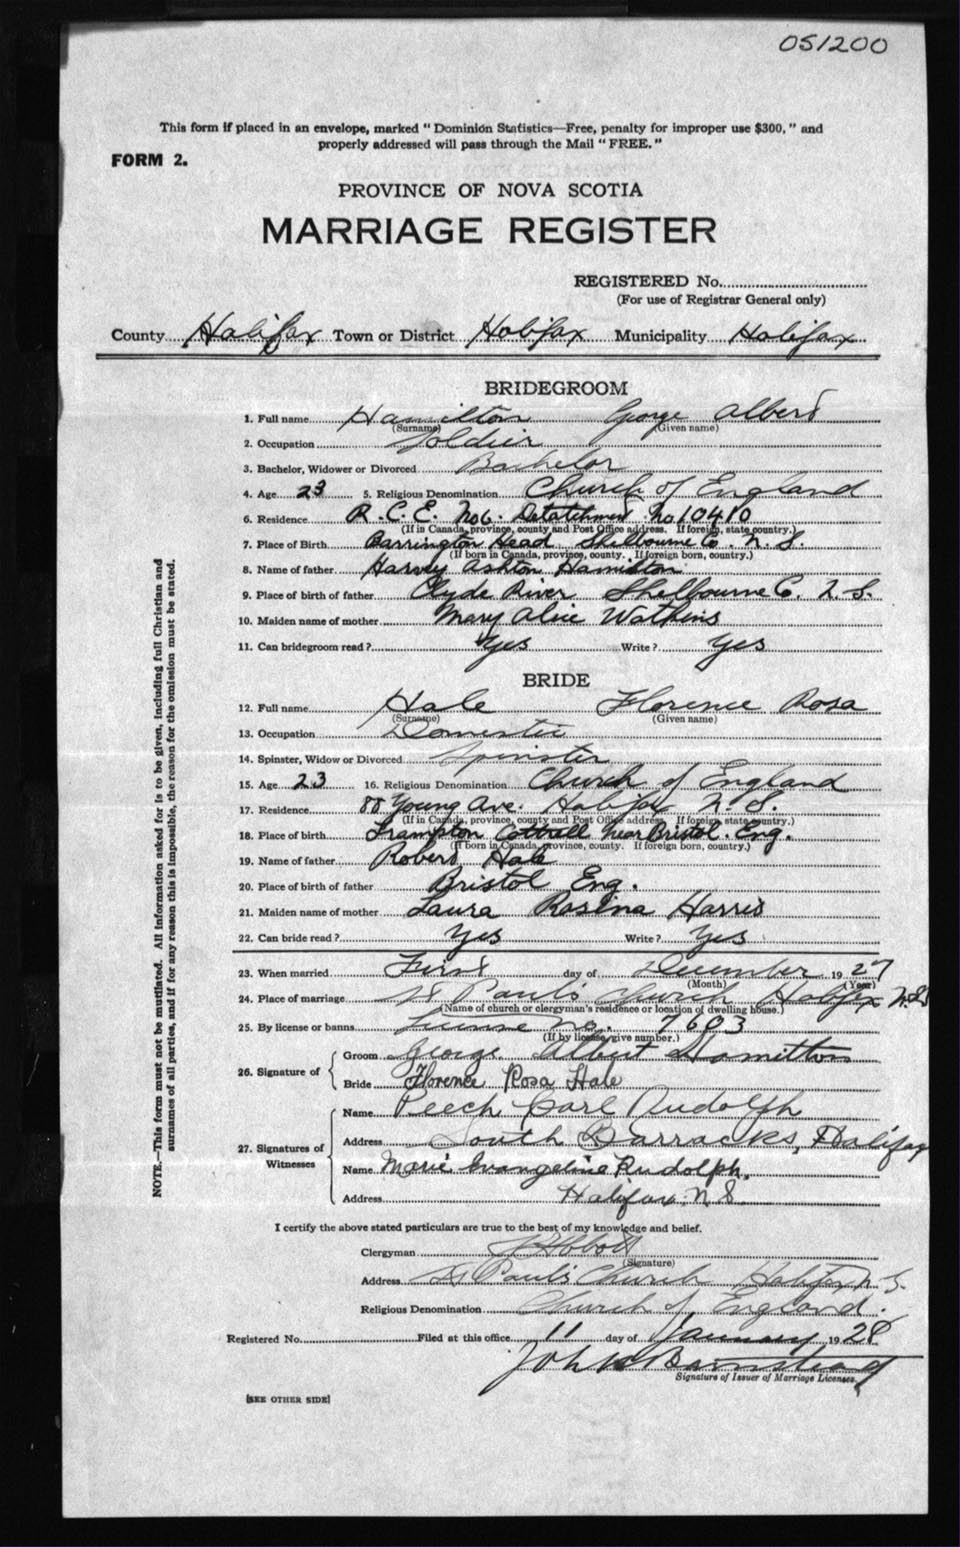 051200
This form if placed in an envelope, marked "Dominion Statistics—Free, penalty for improper use $300," and
properly addressed will pass through the Mail "FREE."
FORM 2.
PROVINCE OF NOVA SCOTIA
MARRIAGE REGISTER
REGISTERED No.
(For use of Registrar General only)
County Halifax Town or District Halifax Municipality Halifax
BRIDEGROOM
1. Full name Hamilton George Albert
(Surname) (Given name)
2. Occupation Soldier
3. Bachelor, Widower or Divorced Bachelor
4. Age 23 5. Religious Denomination Church of England
6. Residence R.C.E. No6. Detatchment No 10410
(If in Canada, province, county and Post Office address. If foreign, state country.)
7. Place of Birth Barrington Head Shelbourne Co. N.S.
(If born in Canada, province, county. If foreign born, country.)
8. Name of father Harvey Ashton Hamilton
9. Place of birth of father Clyde River Shelbourne Co. N.S.
10. Maiden name of mother Mary Alice Watkins
11. Can bridegroom read? Yes Write? Yes
BRIDE
12. Full name Hale Florence Rosa
(Surname) (Given name)
13. Occupation Domestic
14. Spinster, Widow or Divorced Spinster
15. Age 23 16. Religious Denomination Church of England
17. Residence 88 Young Ave. Halifax N.S.
(If in Canada, province, county and Post Office address. If foreign, state country.)
18. Place of birth Frampton Cottrell Near Bristol. Eng.
(If born in Canada, province, county. If foreign born, country.)
19. Name of father Robert Hale
20. Place of birth of father Bristol Eng.
21. Maiden name of mother Laura Rosina Harris
22. Can bride read? Yes Write? Yes
23. When married First day of December 1927
(Month) (Year)
24. Place of marriage St Paul's Church Halifax N.S.
(Name of church or clergyman's residence or location of dwelling house.)
25. By license or banns License No. 7603
(If by license, give number.)
26. Signature of
Groom George Albert Hamilton
Bride Florence Rosa Hale
27. Signatures of Witnesses
Name Peech Carl Rudolph
Address South Barracks, Halifax
Name Marie Evangeline Rudolph.
Address Halifax N.S
I certify the above stated particulars are true to the best of my knowledge and belief.
Clergyman
(Signature)
Address St Paul's Church Halifax N.S.
Religious Denomination Church of England.
Registered No. Filed at this office 11 day of January 1928
Signature of Issuer of Marriage Licenses.
[SEE OTHER SIDE]
NOTE.—This form must not be mutilated. All information asked for is to be given, including full Christian and
surnames of all parties, and if for any reason this is impossible, the reason for the omission must be stated.